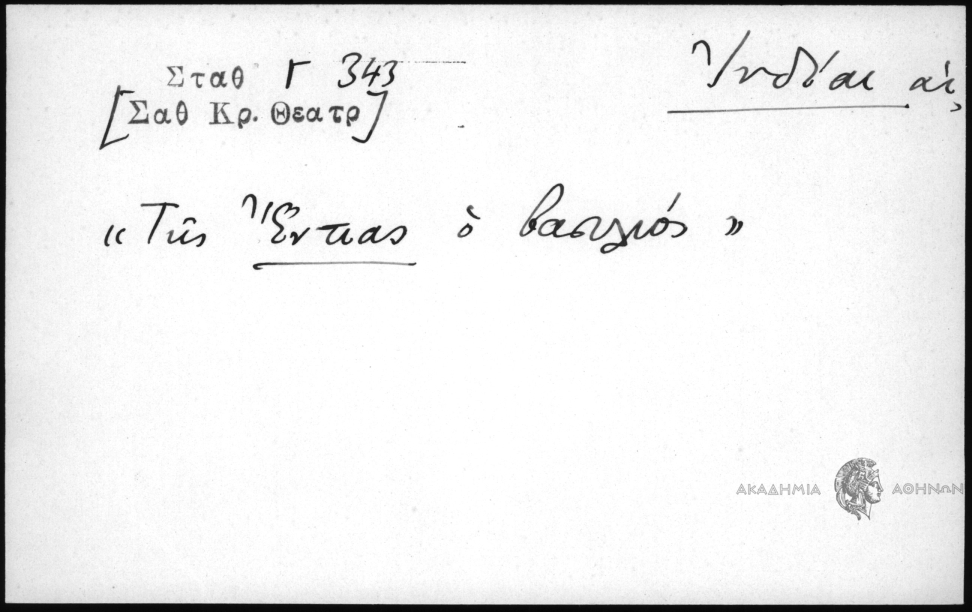 Σταθ Γ 343
Ἰνδίαι αἱ
[Σαθ Κρ. Θεατρ]
« Τῆς Ἔντιας ὁ βασιλιός »
ΑΚΑΔΗΜΙΑ ΑΘΗΝΩΝ